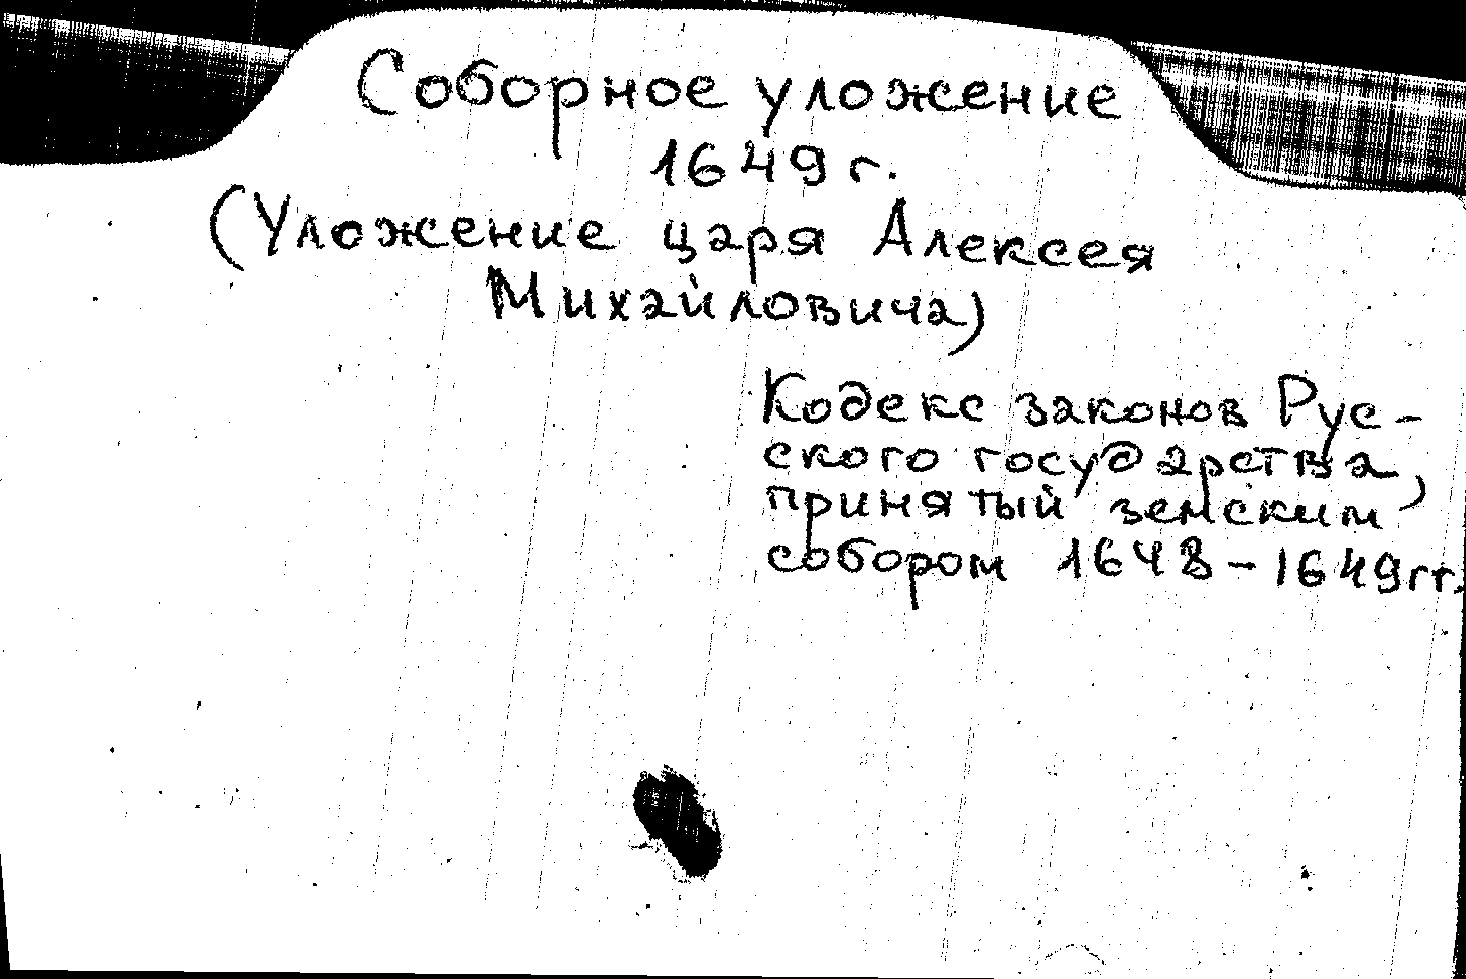 Соборное уложение
1649 г.
(Уложение царя Алексея
Михайловича)
Кодекс законов Рус-
ского государства,
принятый земским
собором 1648-1649гг.